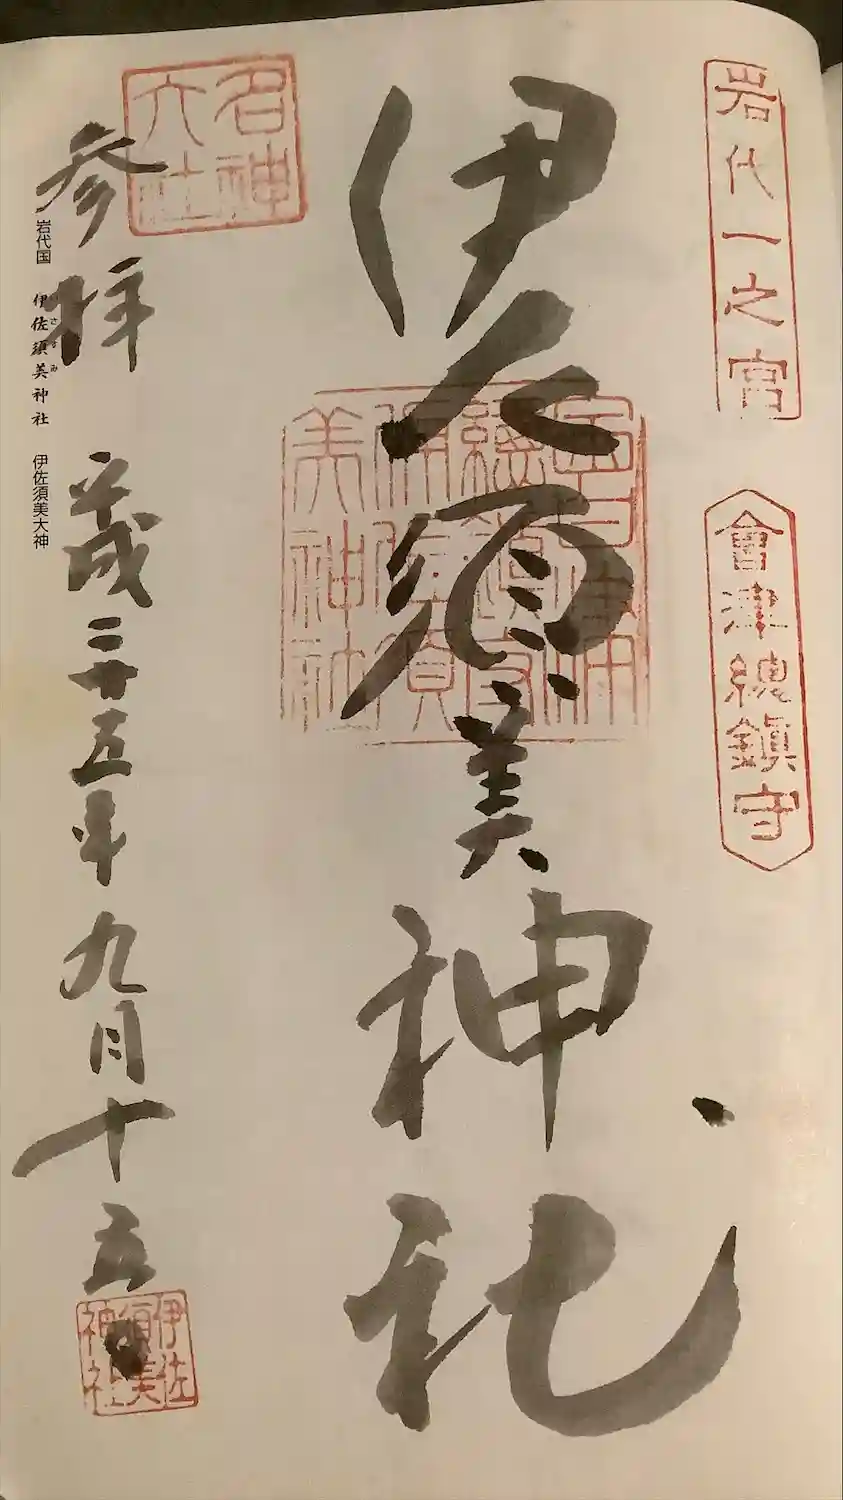 岩代一之宮
會津總鎮守
伊佐須美神社
總鎮守
伊佐須
美神社
名神
大社
参拝 平成二十五年九月十五日
伊佐
須美
神社
岩代国 伊佐須美神社 伊佐須美大神
いさすみ